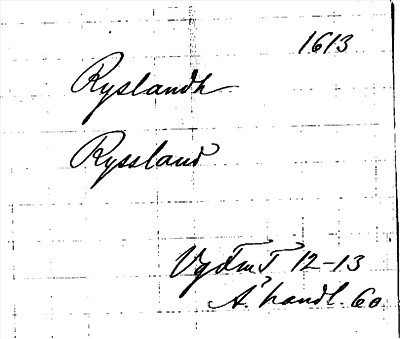 1613
Ryslandh
Ryssland
VgFmT 12-13
Ä. handl. 60.